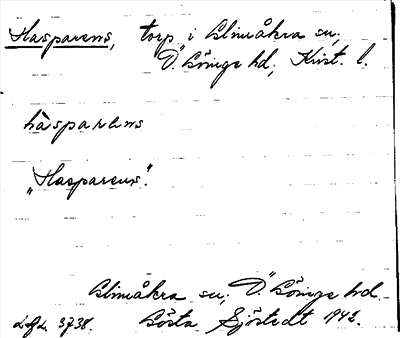 Hasparens, torp i Glimåkra sn,
Ö. Göinge hd, Krist. l.
hàsparens
„Hasparens".
Glimåkra sn, Ö. Göinge hd
3738. Gösta Sjöstedt 1942.